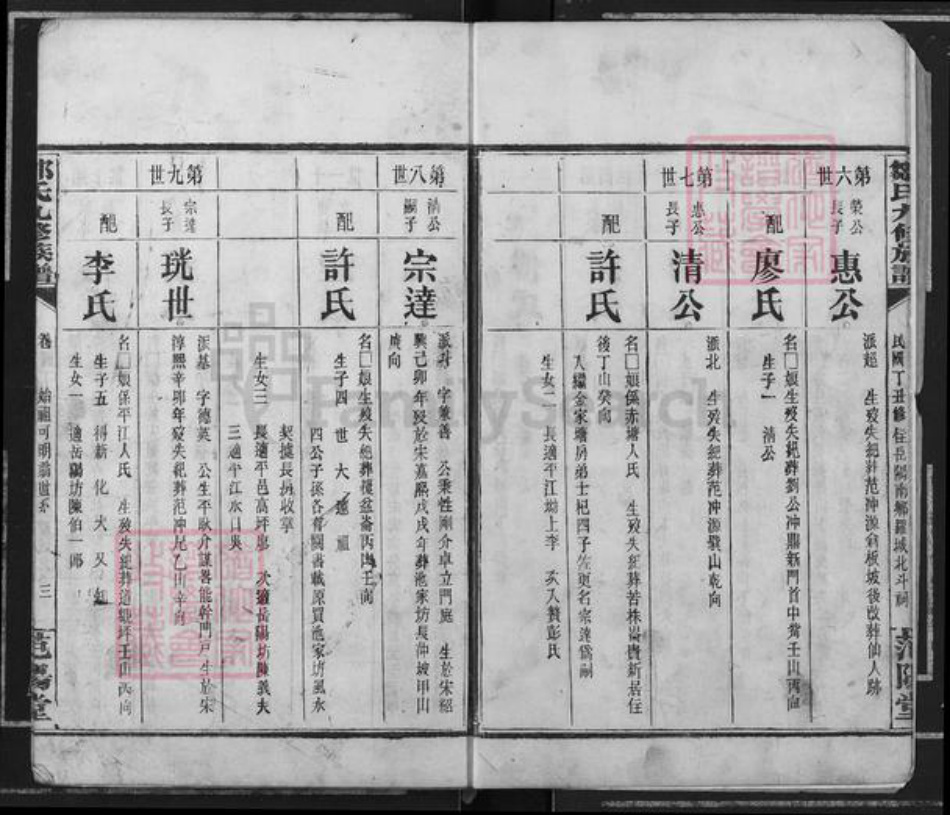 鄒氏九修族譜
民國丁丑修 住岳陽南鄉羅城北斗嗣
范陽堂
第六世
榮公長子
惠公
派超 生歿失紀葬范冲源翁板坡後改葬仙人跡
配
廖氏
名□娘生歿失紀葬劉公冲鼎新門首中嘴壬山丙向
生子一 清公
第七世
惠公長子
清公
派北 生歿失紀葬范冲源戥山乾向
配
許氏
名□娘係赤塘人氏 生歿失紀葬苦株崙貴新居住
後丁山癸向
入繼金家塘房弟士杞四子佐更名宗達為嗣
生女二 長適平江坳上李 次入贅彭氏
第八世
清公嗣子
宗達
派 字兼善 公秉性剛介卓立門庭 生於宋紹
興己卯年歿於宋嘉熙戊戌年葬池家坊長冲坡甲山
庚向
配
許氏
名□娘生歿失紀葬 盆崙丙山壬向
生子四 世 大
四公子孫各有鬮書載原買池家坊風水
契據長房收掌
生女三 長適平邑高坪廖 次適岳陽坊陳義夫
三適平江水口吳
第九世
宗達長子
珖世
派基 字德英 公生平耿介謀畧能幹門戶生於宋
淳熙辛卯年歿失紀葬范冲尾乙山辛向
配
李氏
名□娘係平江人氏 生歿失紀葬 塘坪壬山丙向
生子五 得新 化 大 又
生女一 適岳陽坊陳伯一郎
鄒氏九修族譜
卷 始祖可明翁世系 三
范陽堂
FamilySearch